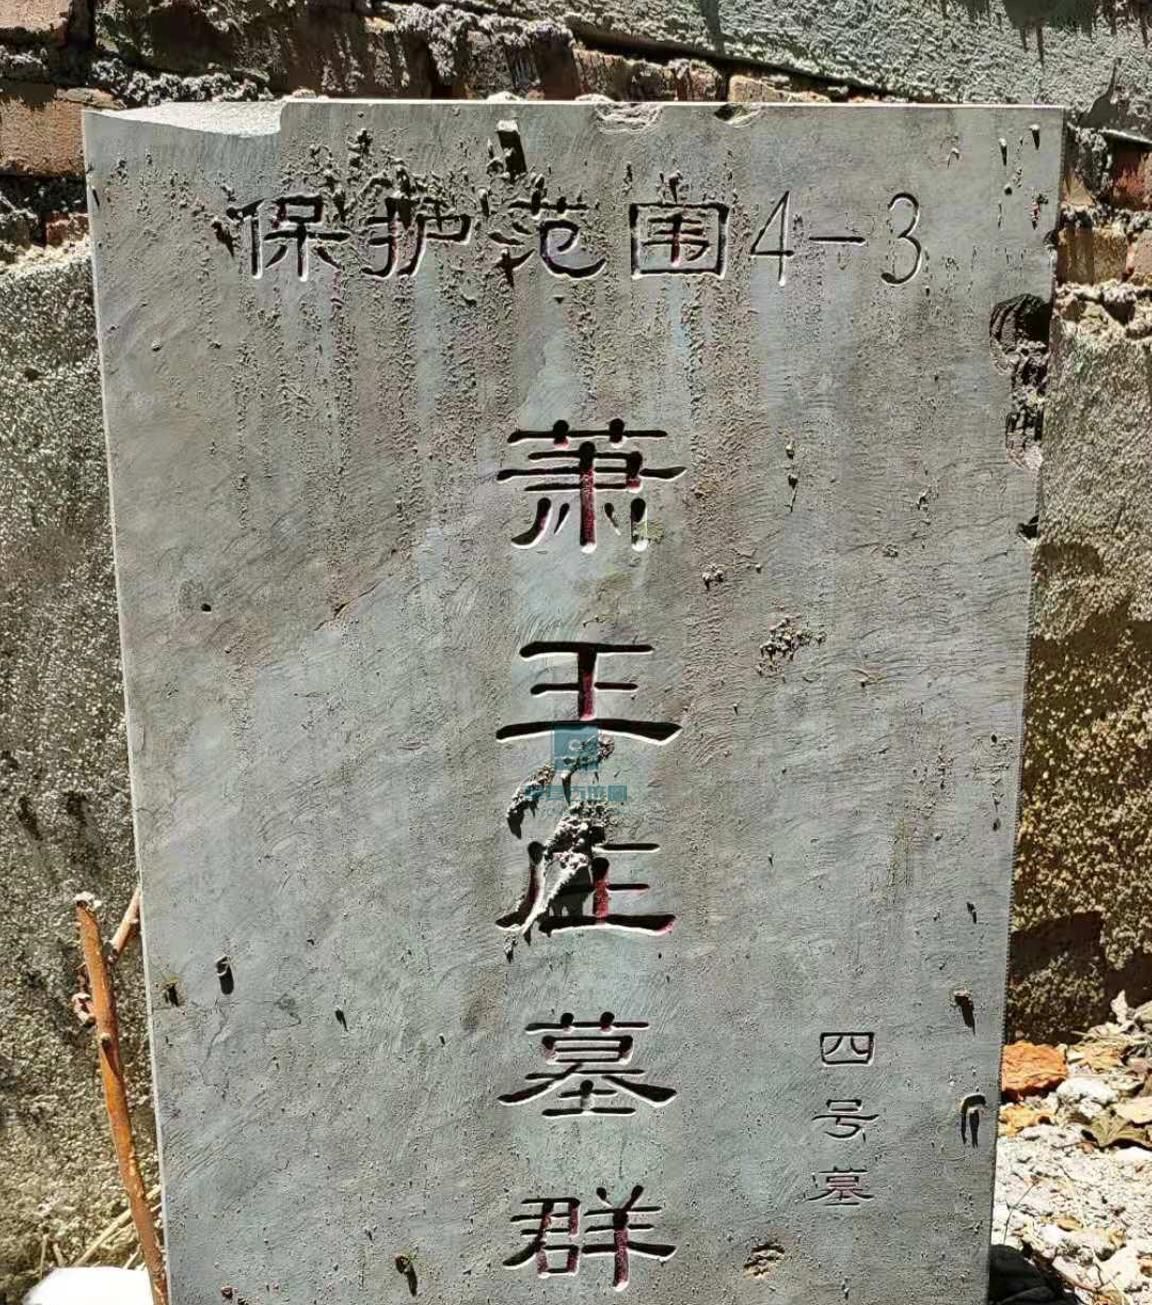 保护范围4-3
萧王庄墓群
四号墓